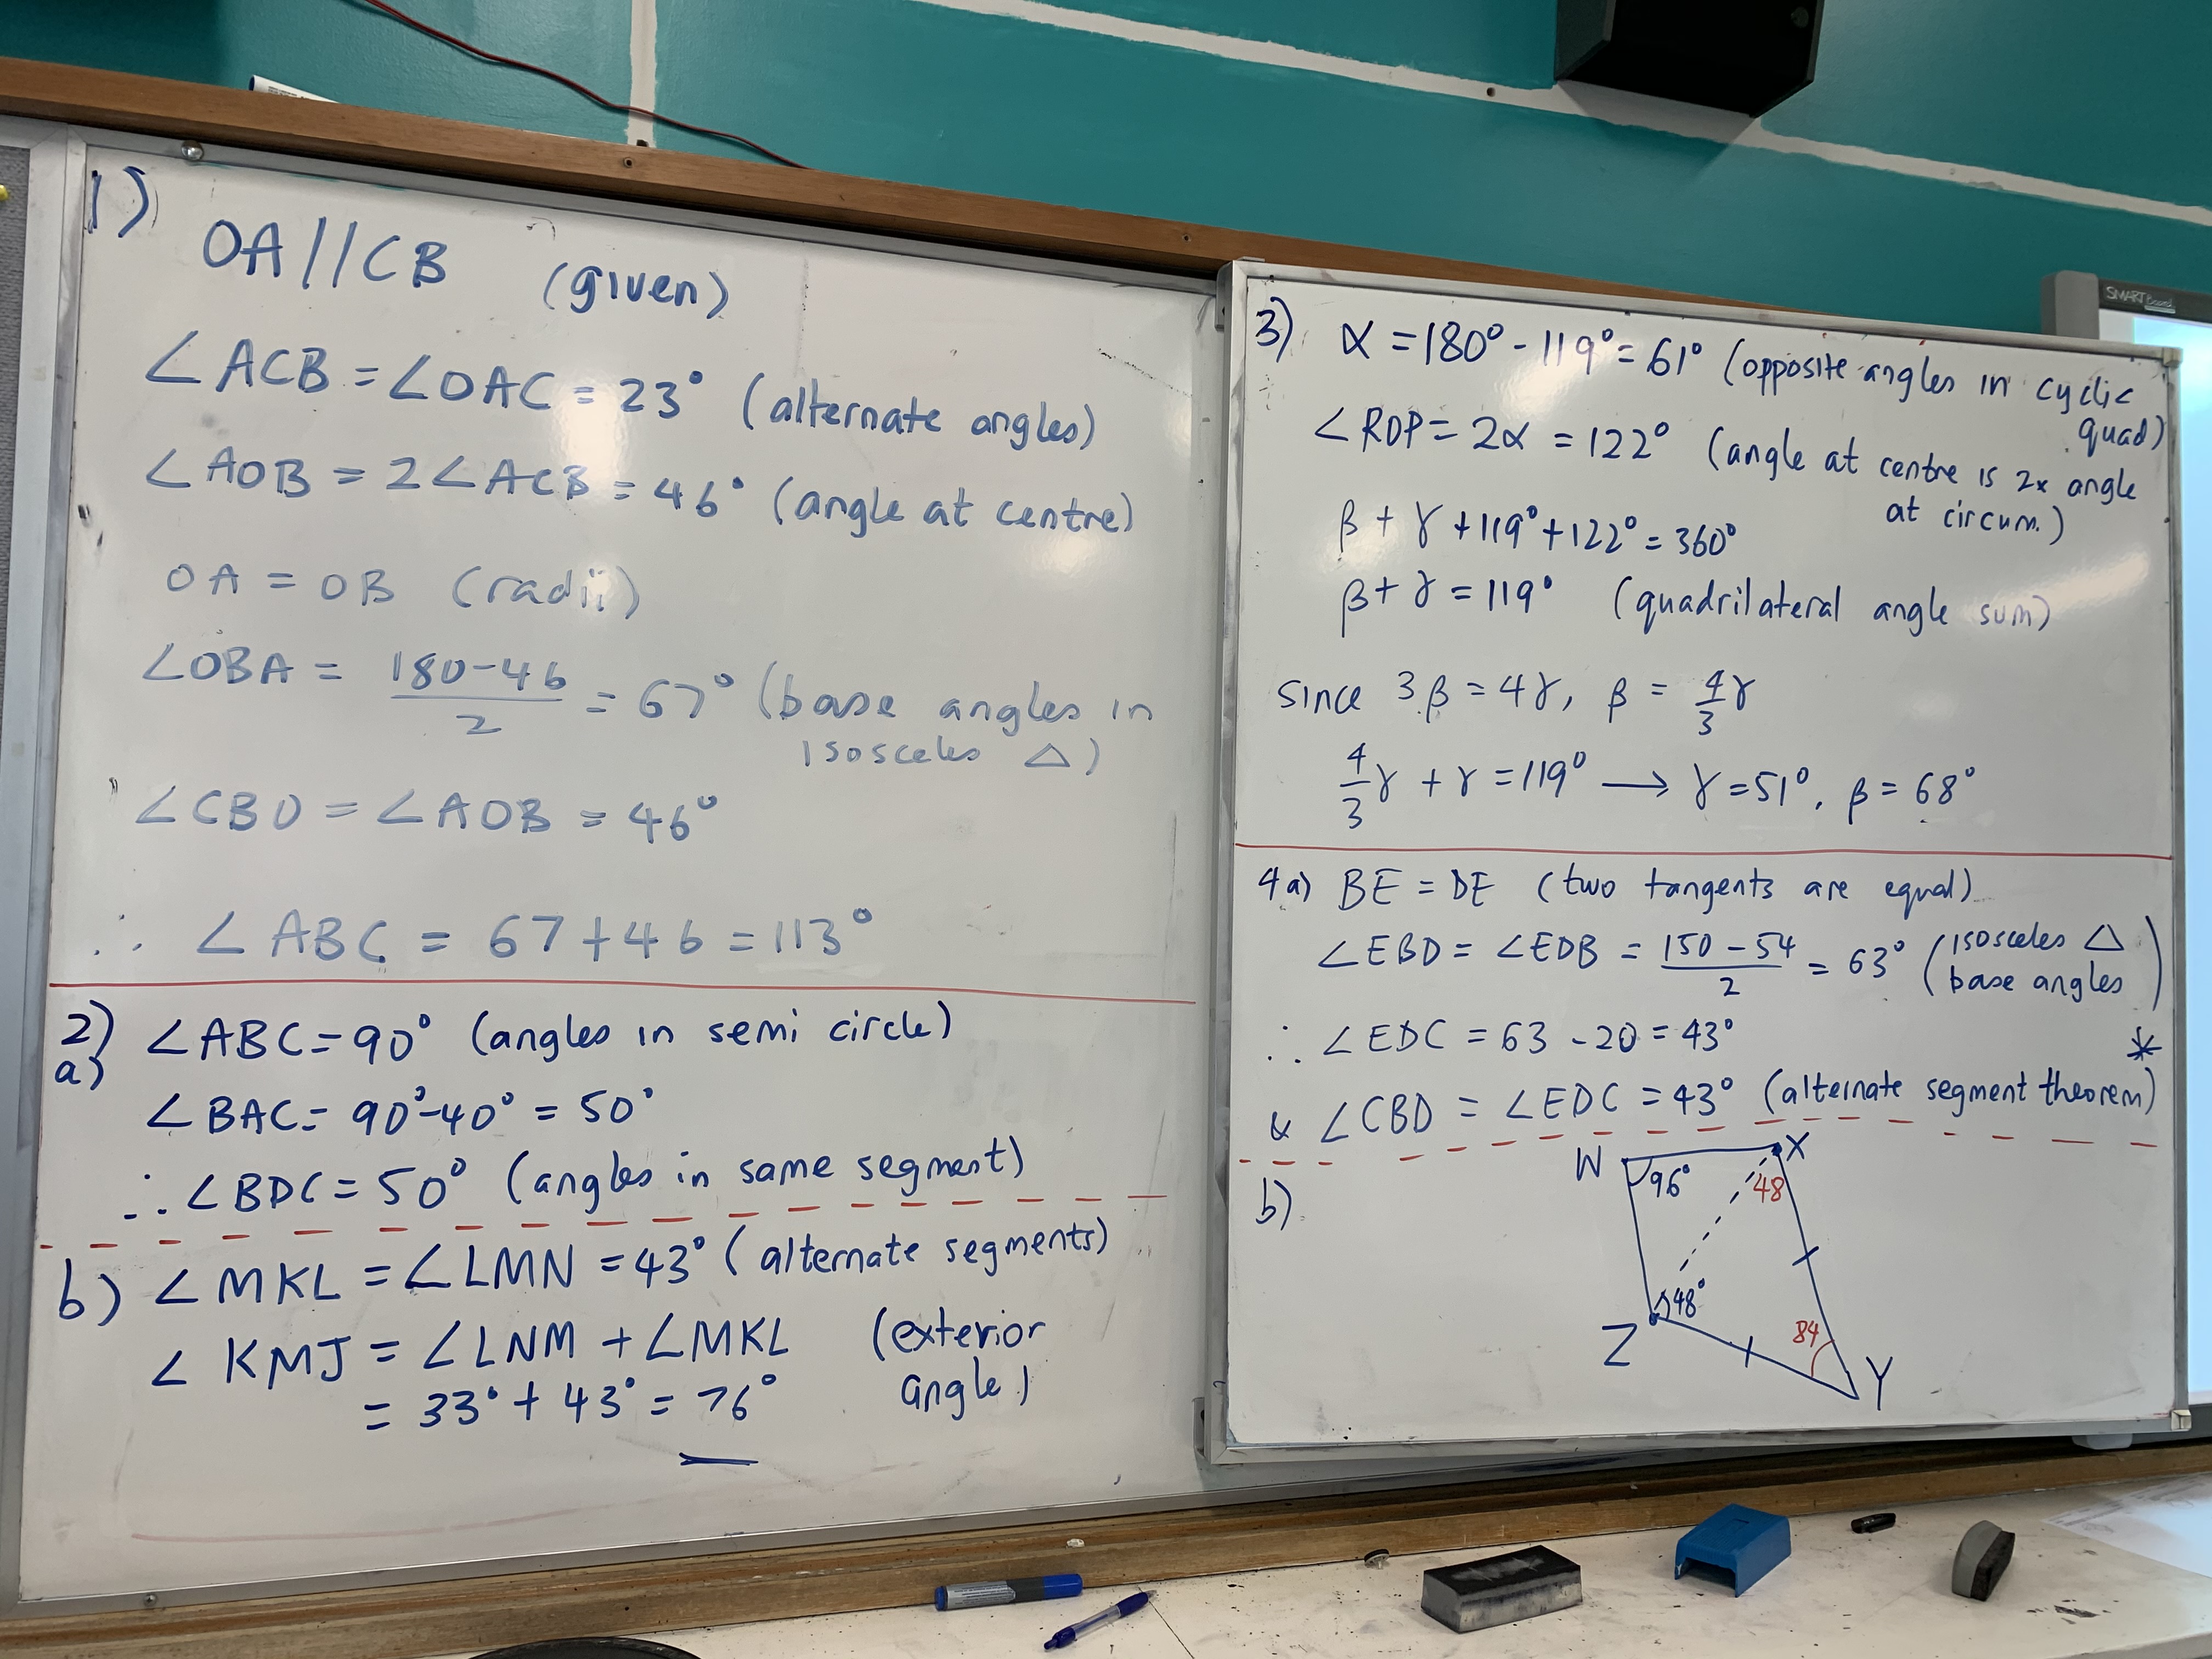 1)
OA//CB (given)
∠ACB = ∠OAC = 23° (alternate angles)
∠AOB = 2∠ACB = 46° (angle at centre)
OA = OB (radii)
∠OBA = (180-46)/2 = 67° (base angles in
isosceles △)
∠CBO = ∠AOB = 46°
∴ ∠ABC = 67+46 = 113°
2)
a) ∠ABC = 90° (angles in semi circle)
∠BAC = 90°-40° = 50°
∴ ∠BDC = 50° (angles in same segment)
b) ∠MKL = ∠LMN = 43° (alternate segments)
∠KMJ = ∠LNM + ∠MKL (exterior
= 33° + 43° = 76° angle)
3) α = 180° - 119° = 61° (opposite angles in cyclic
quad)
∠ROP = 2α = 122° (angle at centre is 2x angle
at circum.)
β + γ + 119° + 122° = 360°
β + γ = 119° (quadrilateral angle sum)
since 3β = 4γ, β = 4/3 γ
4/3 γ + γ = 119° → γ = 51°, β = 68°
4a) BE = DE (two tangents are equal)
∠EBD = ∠EDB = (150-54)/2 = 63° (isosceles △
base angles)
∴ ∠EDC = 63 - 20 = 43° *
& ∠CBD = ∠EDC = 43° (alternate segment theorem)
b)
W X
96° 48
48°
Z 84 Y
SMART Board